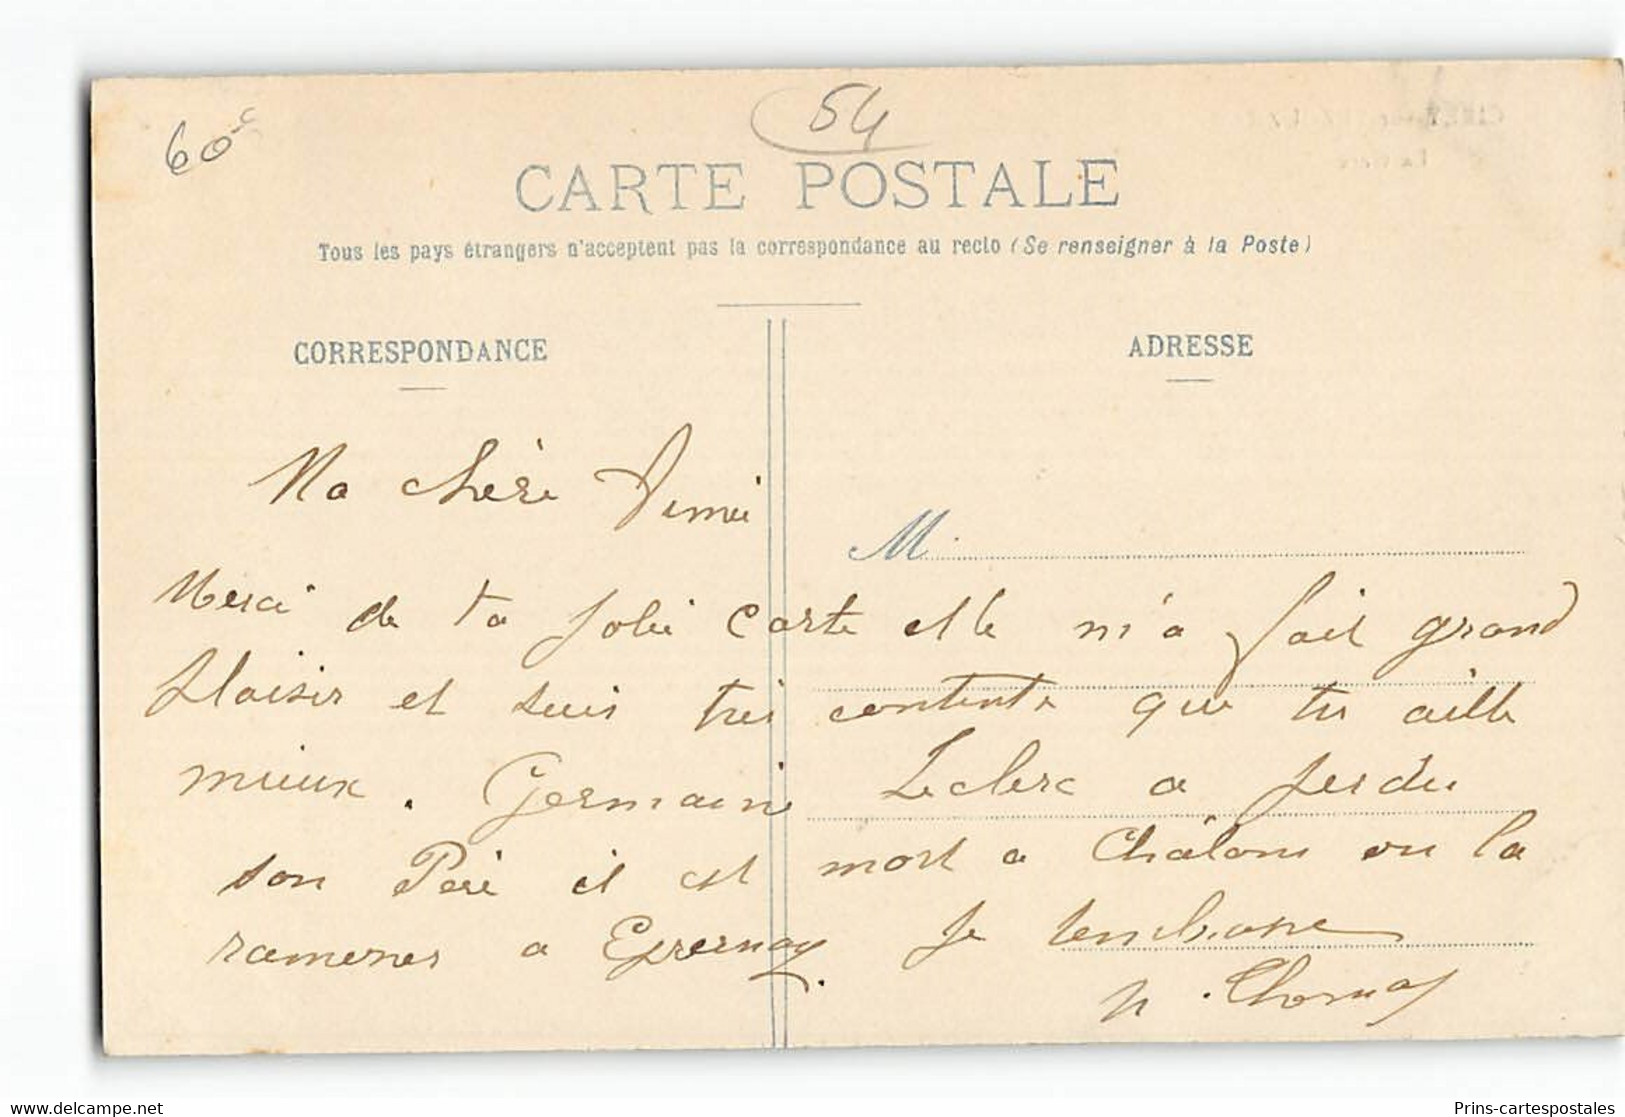 60c
54
CARTE POSTALE
Tous les pays étrangers n'acceptent pas la correspondance au recto (Se renseigner à la Poste)
CORRESPONDANCE
ADRESSE
M
Ma chère
Merci de ta jolie carte elle m'a fait grand
plaisir et suis très contente que tu aille
mieux. Germaine Leclerc a perdu
son Père il est mort a Châlons on la
ramener a Epernay. Je t'embrasse
Thomas
www.delcampe.net
Prins-cartespostales